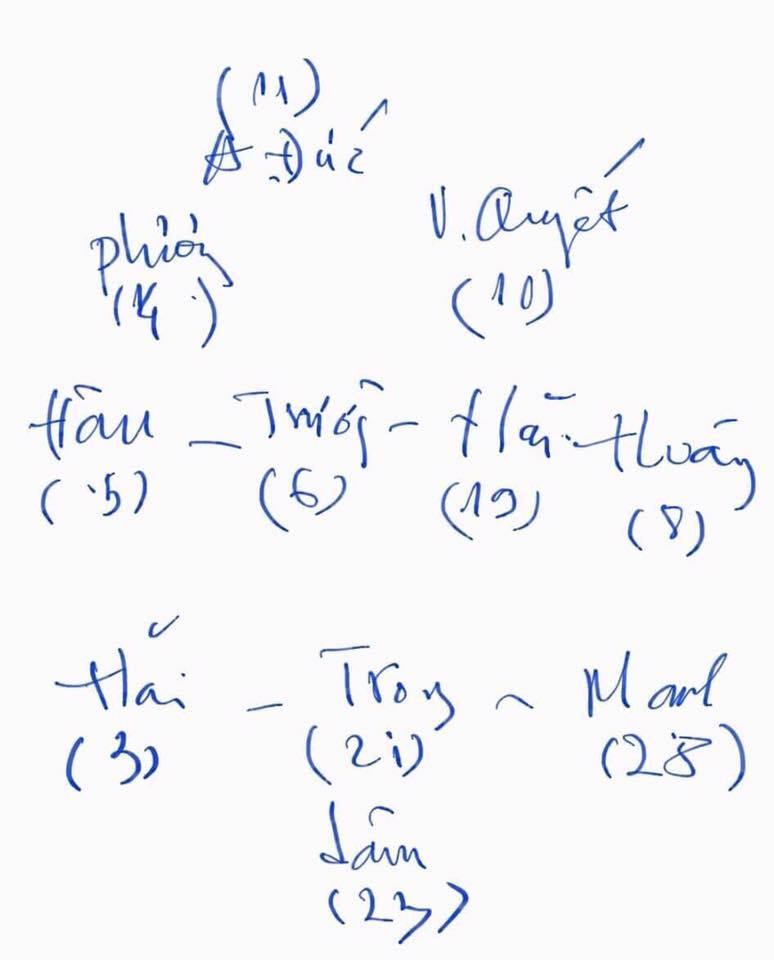 (11)
A Đức
Phượng V. Quyết
(14) (10)
Hậu – Trường – Hải – Hoàng
(5) (6) (19) (8)
Hải – Trọng – Manh
(3) (21) (28)
Lâm
(23)